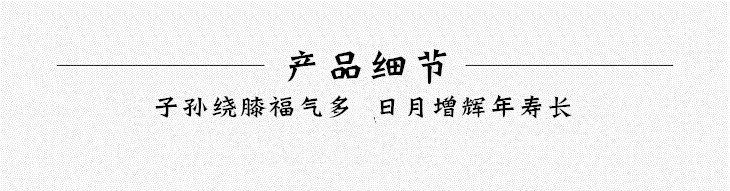 产品细节
子孙绕膝福气多 日月增辉年寿长